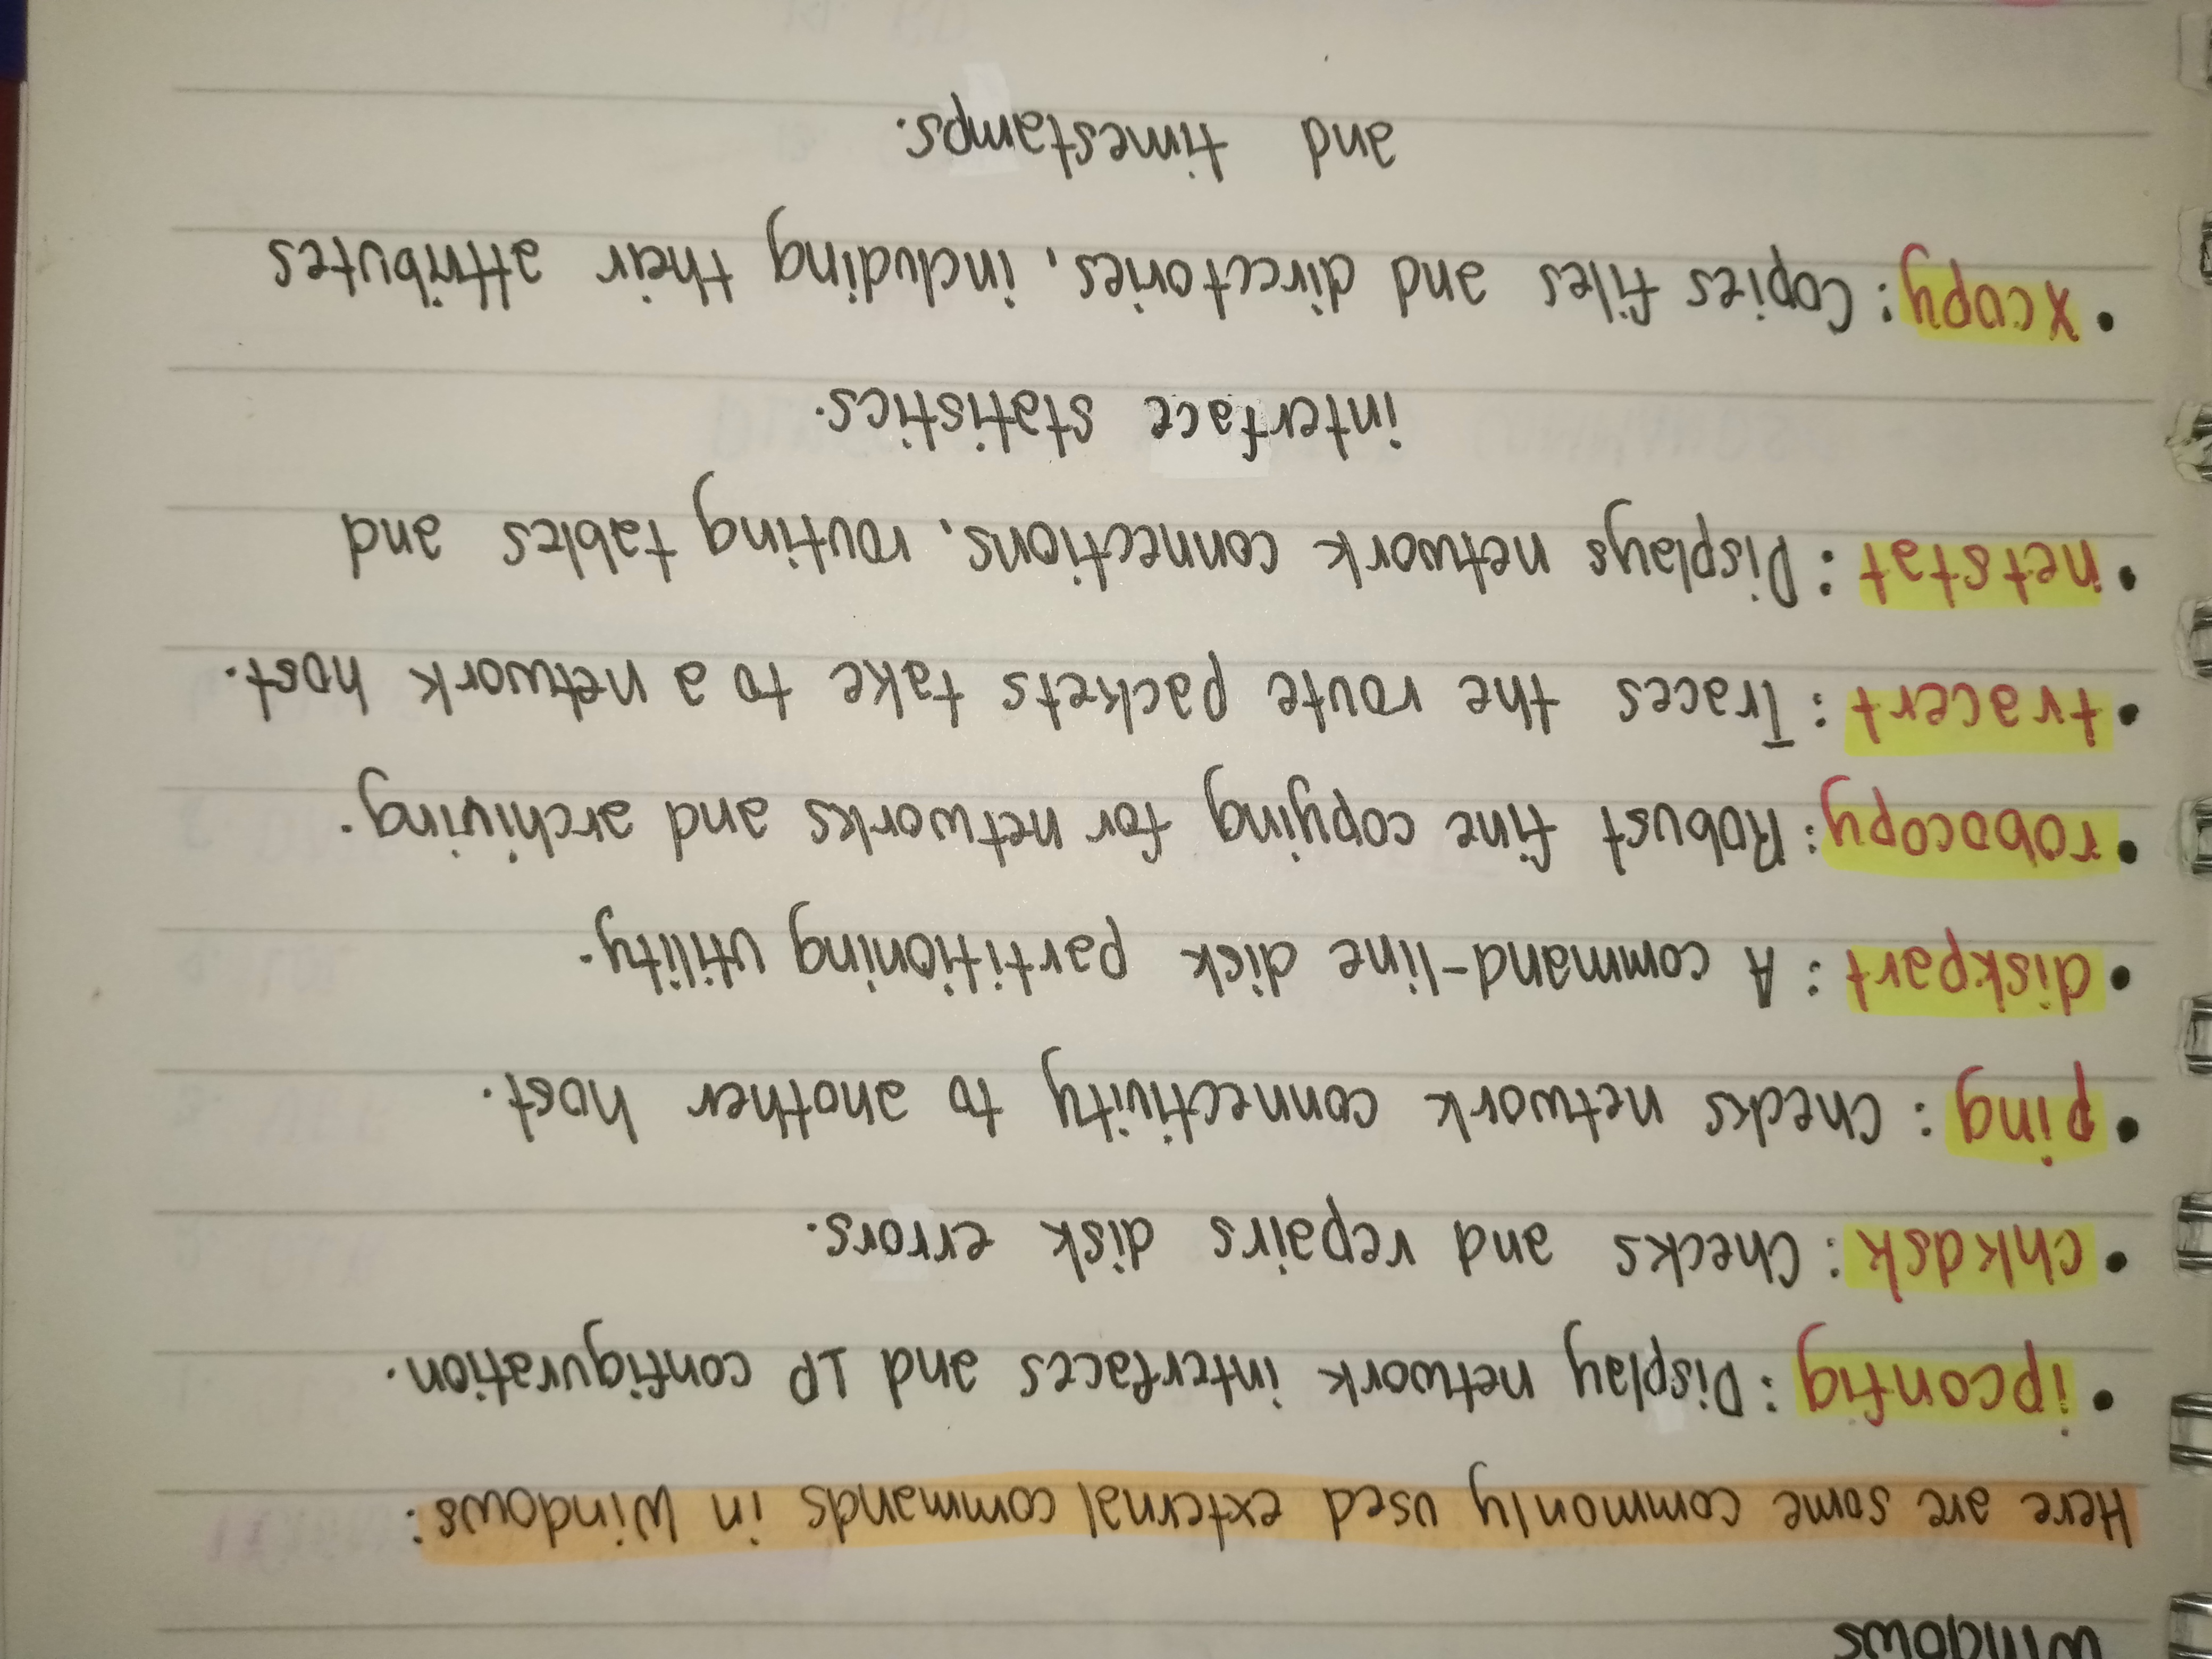 Windows
Here are some commonly used external commands in Windows:
• ipconfig: Display network interfaces and IP configuration.
• chkdsk: Checks and repairs disk errors.
• ping: Checks network connectivity to another host.
• diskpart: A command-line disk partitioning utility.
• robocopy: Robust fine copying for networks and archiving.
• tracert: Traces the route packets take to a network host.
• netstat: Displays network connections, routing tables and
interface statistics.
• xcopy: Copies files and directories, including their attributes
and timestamps.